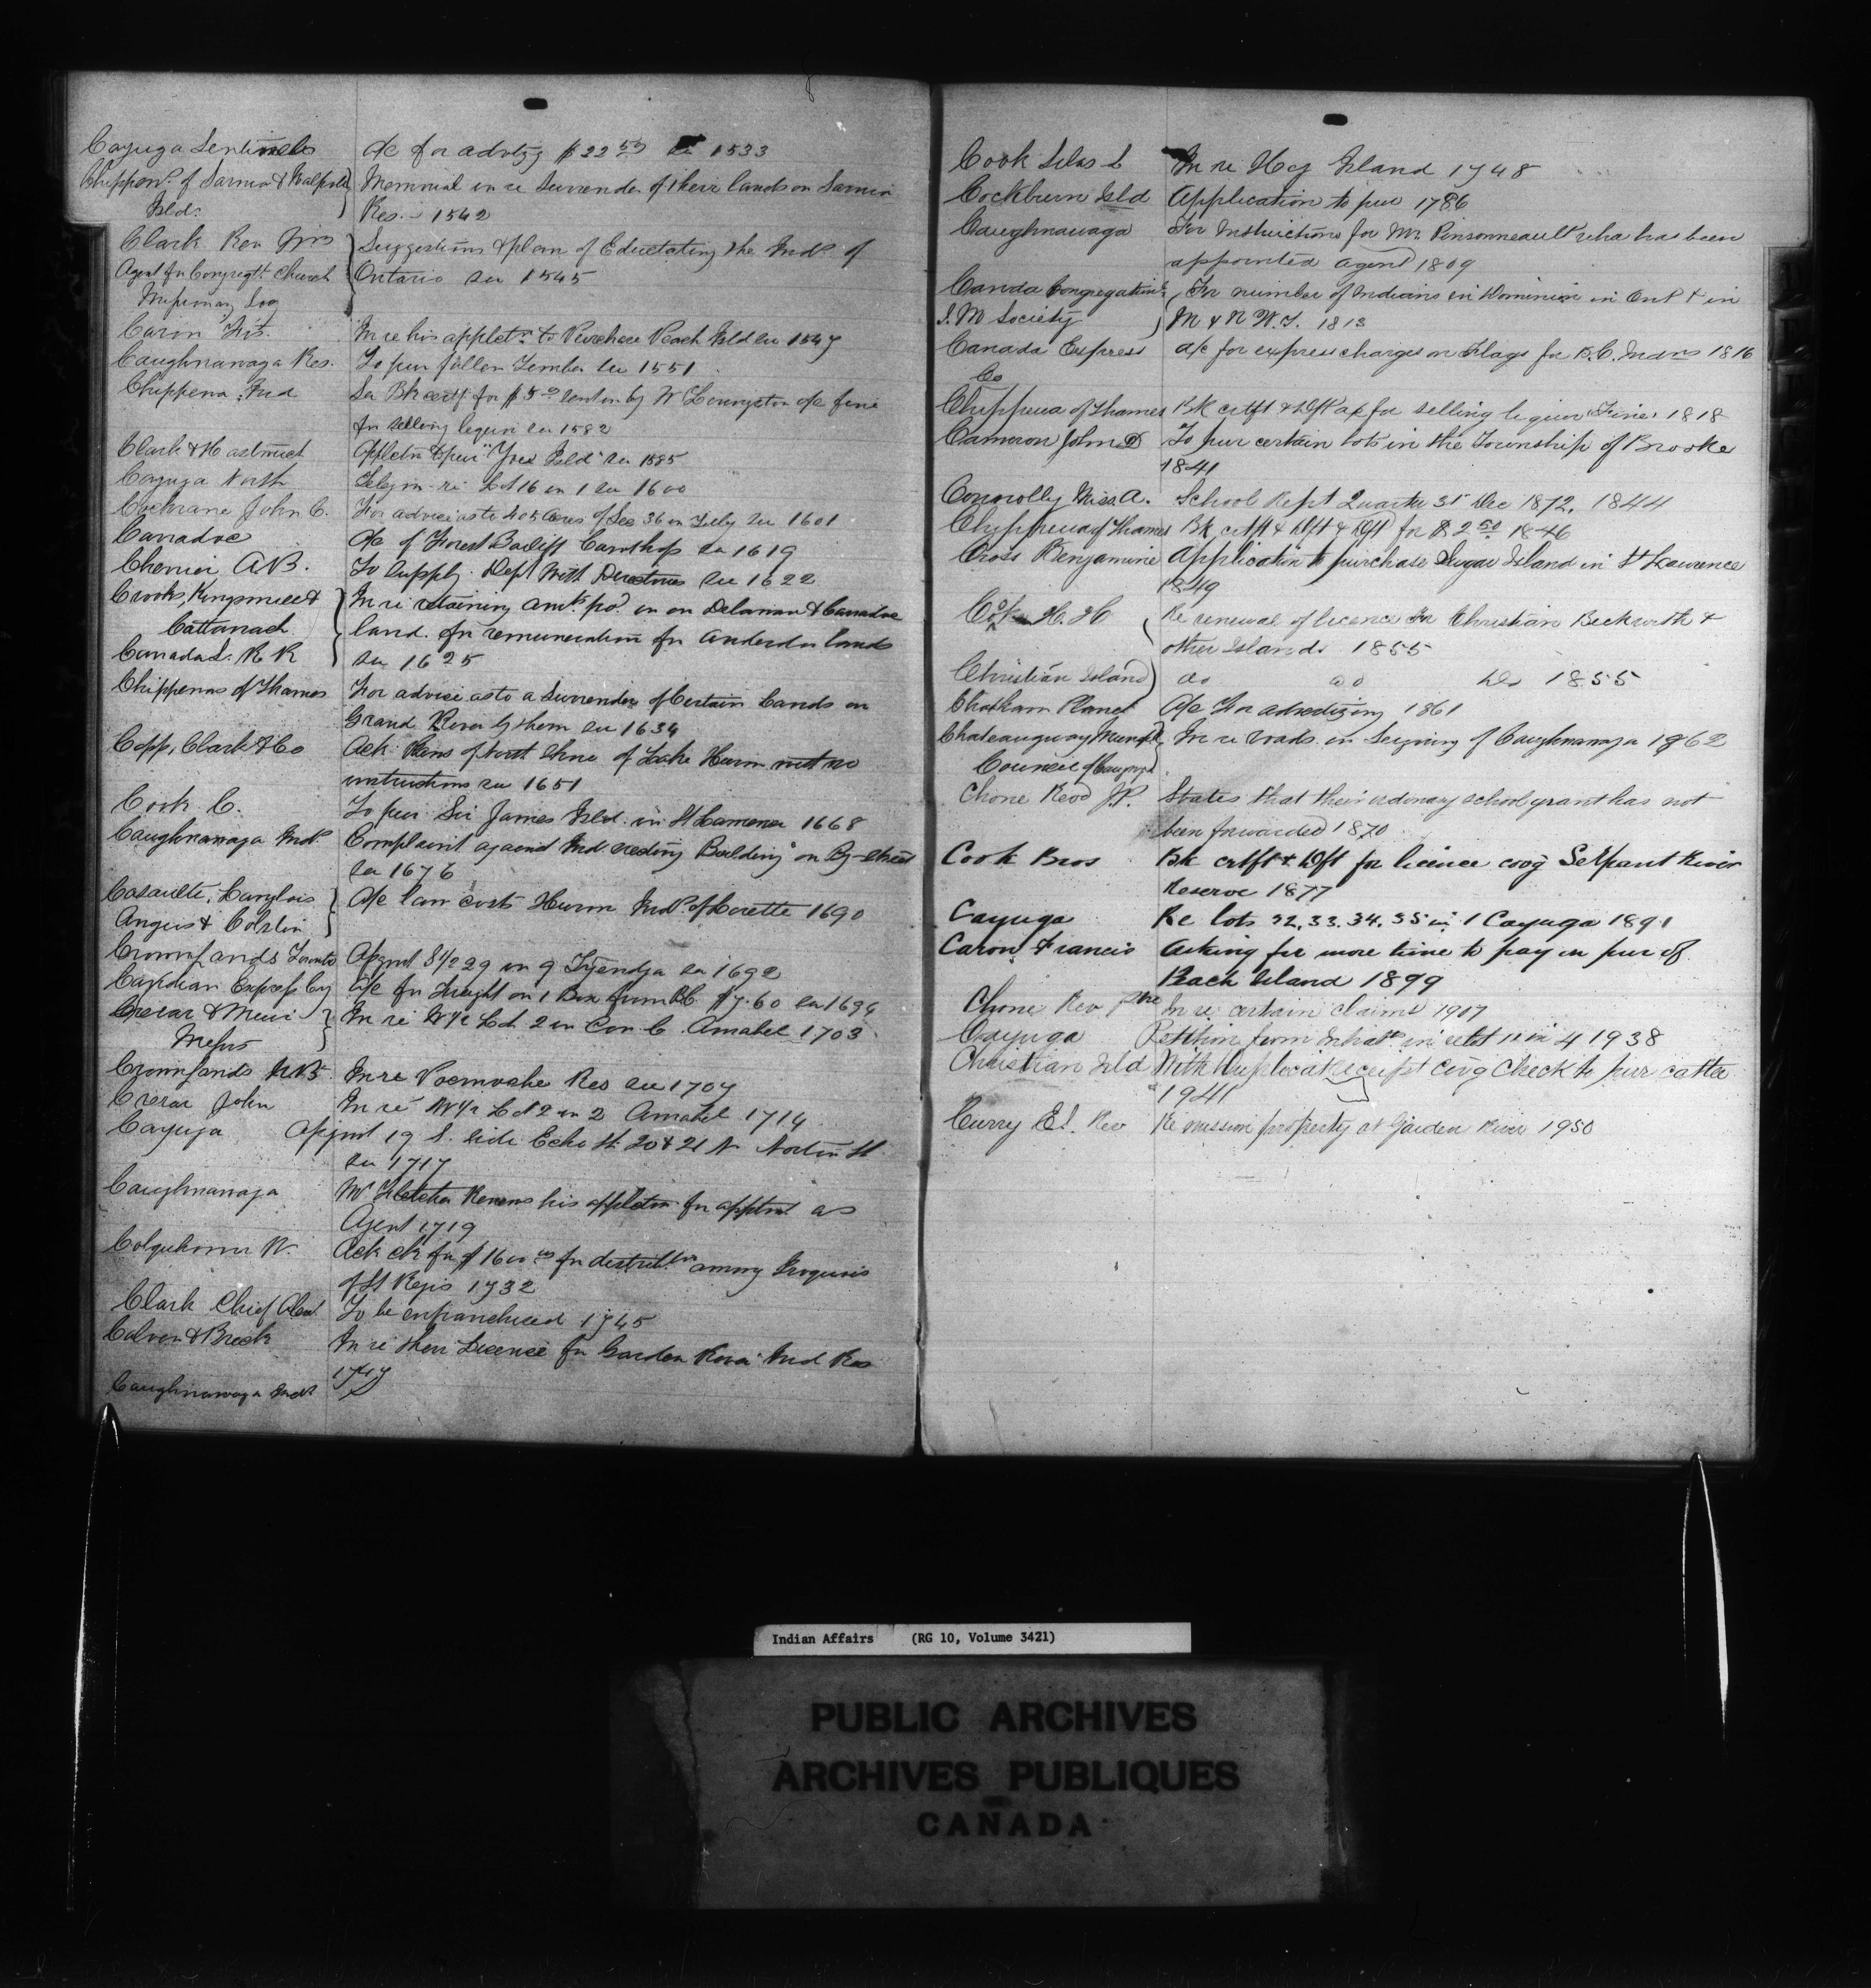 Cayuga Sentinel a/c for advtzg $22.50 see 1533
Chippewas of Sarnia & Walpole Memorial in re Surrender of their lands on Sarnia
Isld. Res. 1542
Clark Rev Suggestions & plan of Educating the Inds of
Agent for Congregtl. Church Ontario see 1545
Missionary Soc
Caron Frs. In re his appletn to Purchase Peach Isld see 1547
Caughnawaga Res. To pur fallen Timber see 1551
Chippewa Ind See Bk certf for $5.00 sent on by W Livingston a/c fine
for selling liquor see 1582
Clark & Appletn to pur Isld see 1585
Cayuga North Telegm. re Lot 16 in 1 see 1600
Cochrane John C. For advice as to 405 Acres of Sec 36 in Tully see 1601
Caradoc a/c of Forest Bailiff see 1619
Chenier A.B. To supply Dept with see 1622
Crooks, Kingsmill & In re retaining amt. pd. in on Delaware & Caradoc
Cattanach land. for remuneration for Anderdon lands
Canada S. R R see 1625
Chippewas of Thames For advice as to a Surrender of Certain Lands on
Grand River by them see 1634
Copp, Clark & Co Ack Plans of North Shore of Lake Huron with no
instructions see 1651
Cook C. To pur Sir James Isld. in St Lawrence 1668
Caughnawaga Inds Complaint against Ind Building on By-street
see 1676
Casault, Langlois a/c law costs Huron Inds. of Lorette 1690
Angers & Colston
Crown Lands Toronto 29 in 9 see 1692
Canadian Express Coy a/c for Freight on 1 Box from B.C. $7.60 see 1694
Crerar & Muir In re N½ Lot 2 in Con C. Amabel 1703
Messrs
Crown Lands N.B. In re Res see 1707
Crerar John In re Lot 2 in 2 Amabel 1714
Cayuga 19 S. side Echo St. 20 & 21 N Norton St
see 1717
Caughnawaga Mr Fletcher Renews his appletn for apptmt as
Agent 1719
Colquhoun W. Ack ck for $1600.00 for distribtn among Iroquois
of St Regis 1732
Clark Chief To be enfranchised 1745
Calvin & Breck In re their License for Garden River Ind Res
1747
Caughnawaga Inds
Cook Silas L In re Hog Island 1748
Cockburn Isld Application to pur 1786
Caughnawaga For Instructions for Mr. Pinsonneault who has been
appointed agent 1809
Canada Congregational For number of Indians in Dominion in Ont & in
I. M Society M & N W.T. 1813
Canada Express a/c for express charges on Flags for B.C. Indns 1816
Co
Chippewa of Thames Bk crtft & Dft a/c for selling liquor Fine 1818
Cameron John D To pur certain lots in the Township of Brooke
1841
Connolly Miss A. School Rept Quarter 31st Dec 1872. 1844
Chippewa of Thames Bk crtft & Dft & Dft for $2.50 1846
Cross Benjamine Application to purchase Sugar Island in St Lawrence
1849
Cook H. H Re renewal of licence for Christian Beckwith &
other Islands 1855
Christian Island do do do 1855
Chatham Planet a/c For advertizing 1861
Chateauguay Municipl In re roads in Seigniory of Caughnawaga 1862
Council of
Chone Revd J.P. States that their ordinary school grant has not
been forwarded 1870
Cook Bros Bk crtft & Dft for licence covg Serpant River
Reserve 1877
Cayuga Re lots 32, 33, 34, 35 in 1 Cayuga 1891
Caron Francis Asking for more time to pay in pur of
Peach Island 1899
Chone Rev In re certain claims 1907
Cayuga Petition from in 4 1938
Christian Isld With Duplicate receipt covg Check to pur cattle
1941
Curry Ed. Rev Re mission property at Garden River 1950
Indian Affairs (RG 10, Volume 3421)
PUBLIC ARCHIVES
ARCHIVES PUBLIQUES
CANADA